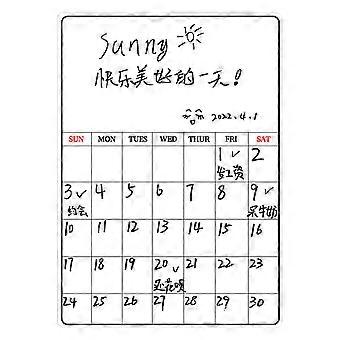 sunny
快乐美好的一天!
2022.4.1
SUN MON TUES WED THUR FRI SAT
1 2
发工资
3 4 5 6 7 8 9
约会
10 11 12 13 14 15 16
17 18 19 20 21 22 23
还花呗
24 25 26 27 28 29 30